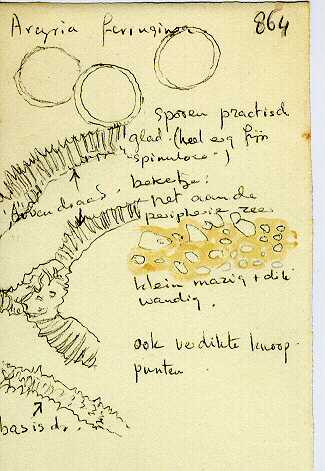 Arcyria ferruginea
864
sporen practisch
glad. (heel erg fijn
spinulose!)
bekertje:
net aan de
peripherie zeer
bovendraad.
klein mazig + dik
wandig.
ook verdikte knoop
punten
basisdr.